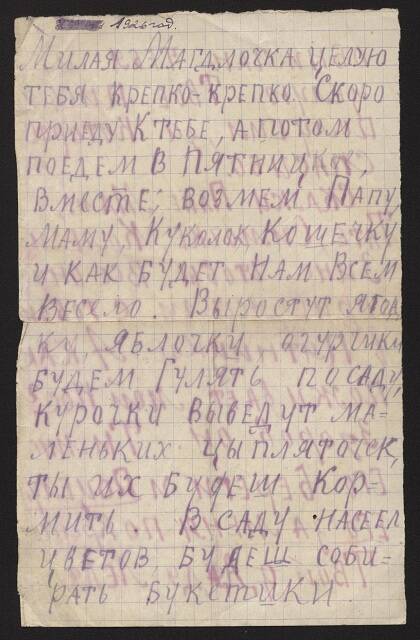 1926 год.
Милая Магдмочка целую
тебя крепко-крепко. Скоро
приеду к тебе, а потом
поедем в Пятницкое,
вместе, возмем Папу,
маму, Куколок Кошечку
и как будет нам всем
весело. Выростут ягод
ки, яблочки, огурчики
будем гулять по саду,
курочки выведут ма=
леньких цыпляточек,
ты их будеш кор=
мить В саду насеем
цветов, будеш соби=
рать букетики.